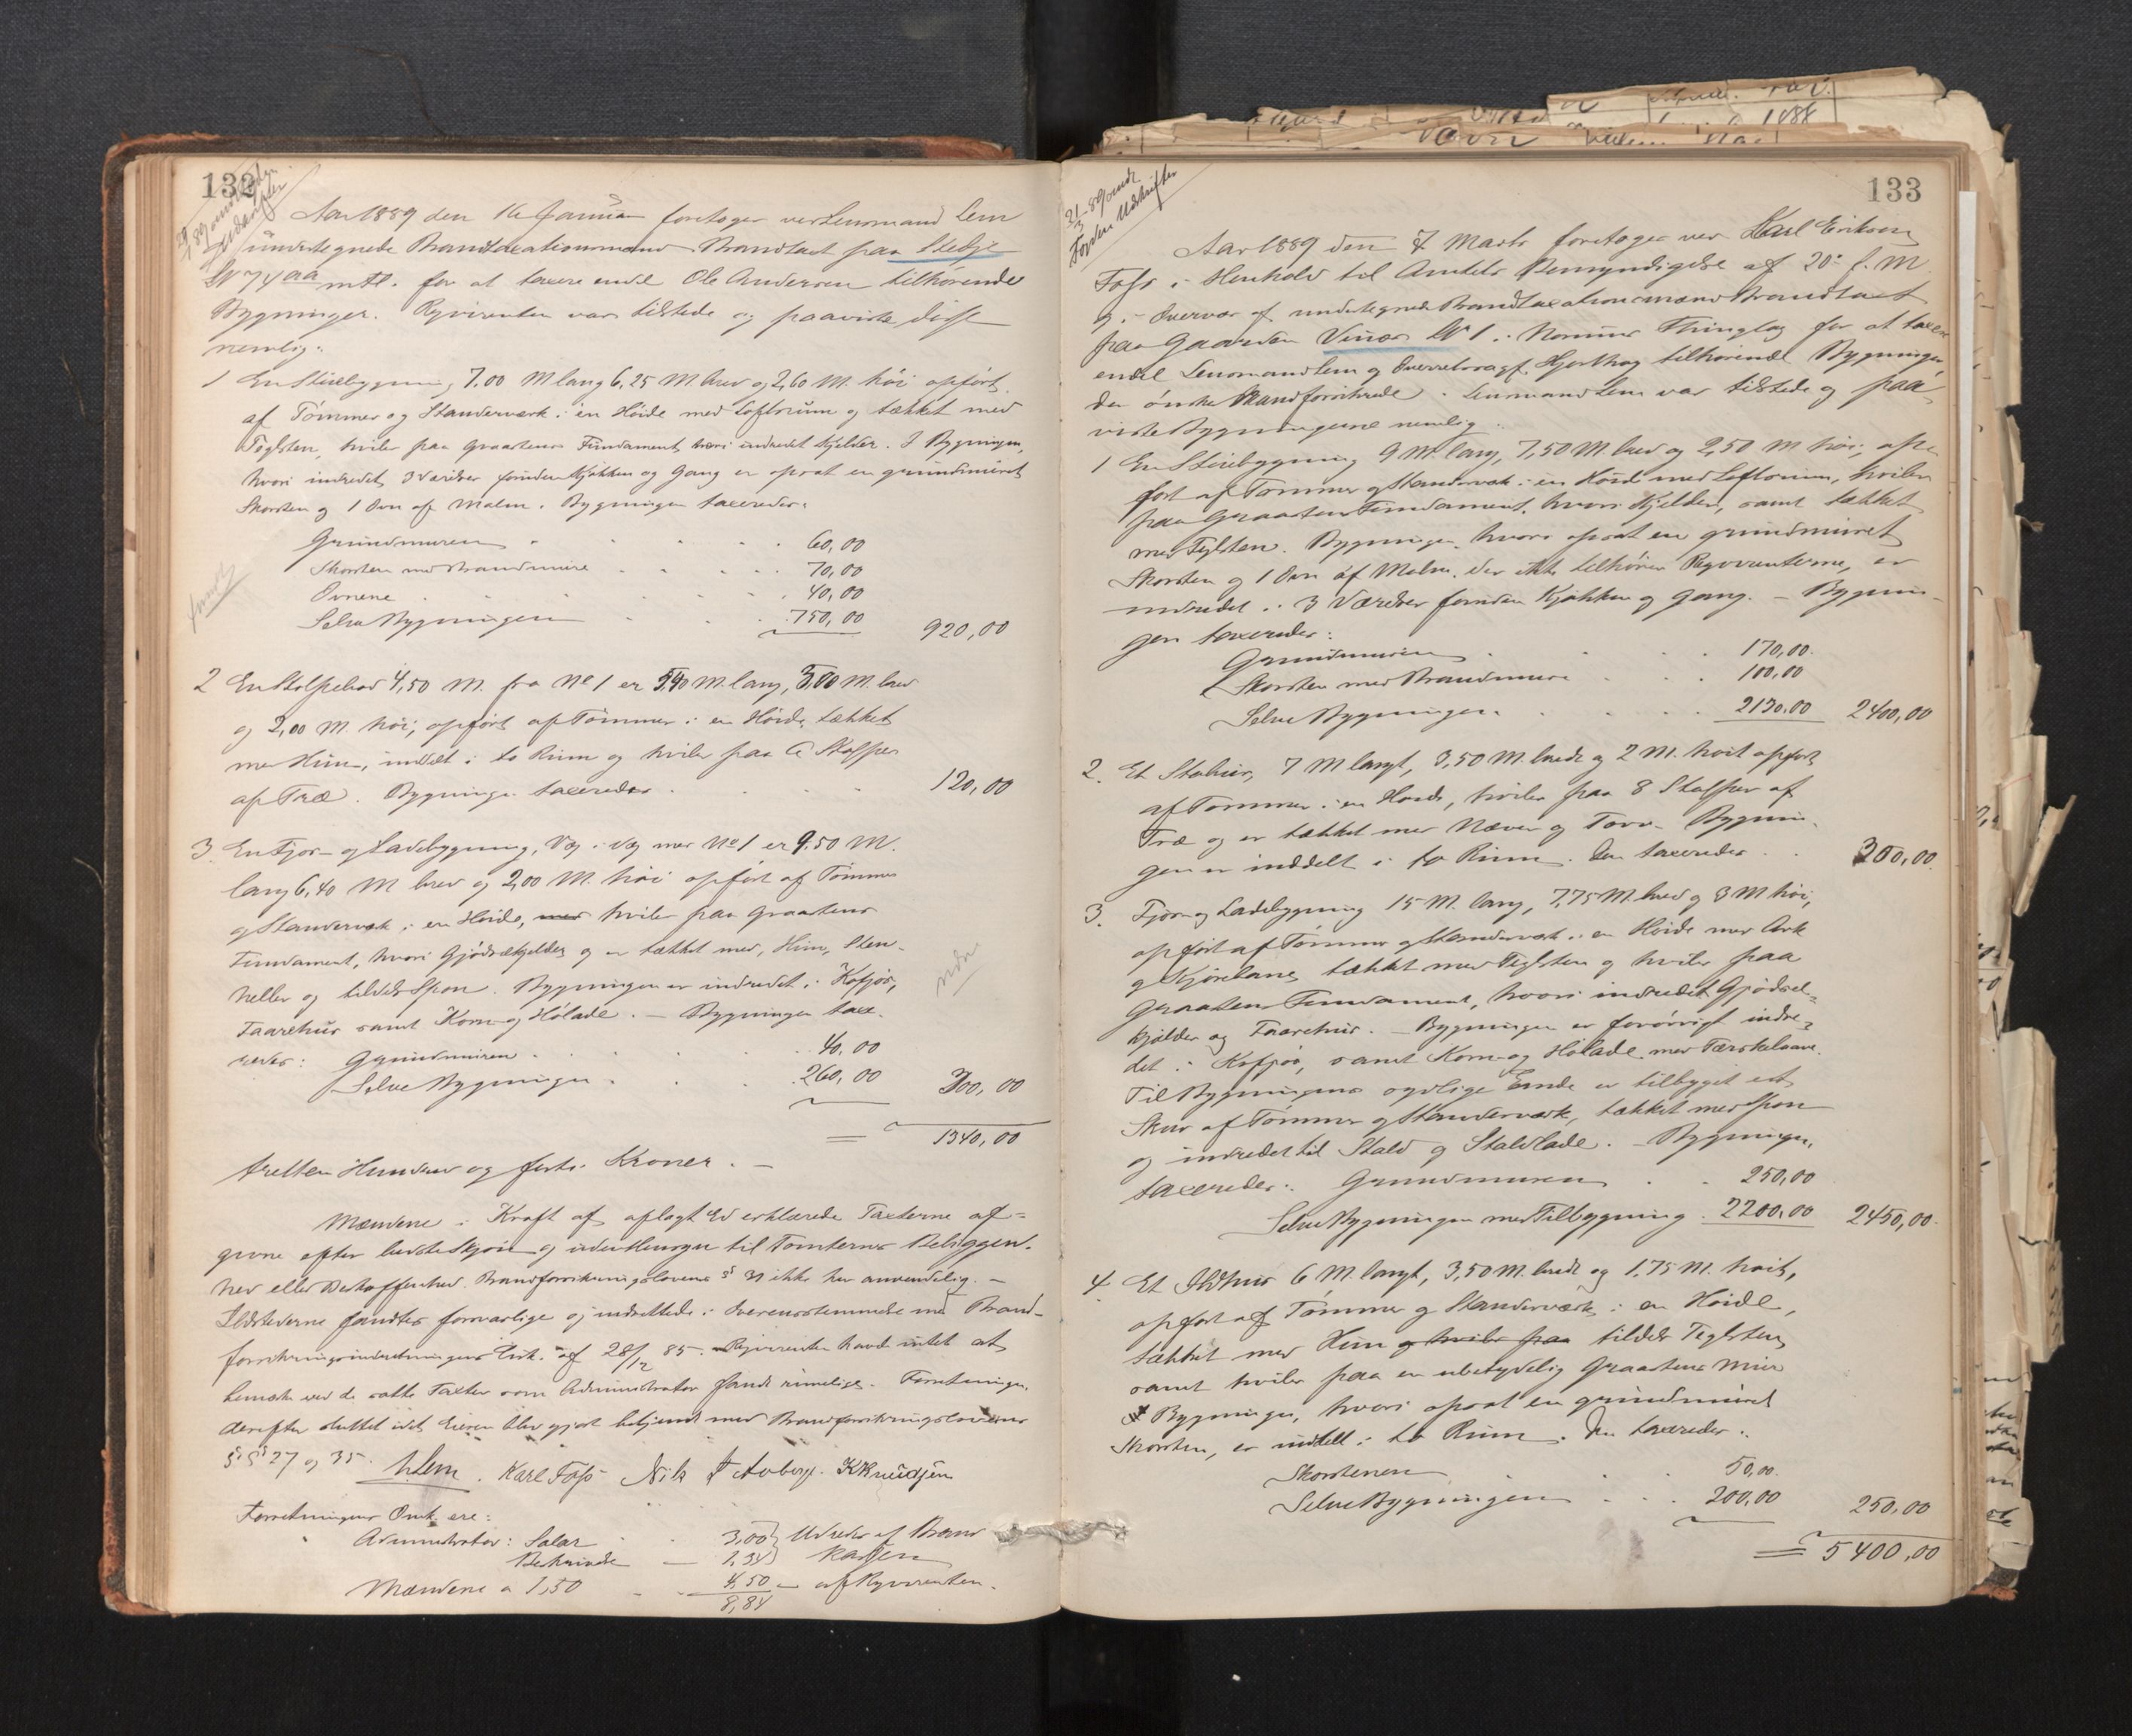 132
Aar 1889 den 16 Januar foretoges ved Lensmand Lem
undertegnede Brandtaxationsmænd Brandtaxt paa
No 74 aa mtl. for at taxere endel Ole Andersen tilhørende
Bygninger. Rqvirenten var tilstede og paaviste disse
nemlig:
1 En Stuebygning 7.00 M lang 6,25 M bred og 2,60 M. høi opført
af Tømmer og Standerværk i en Høide med Loftsrum og tækket med
Teglsten, hviler paa Graastens Fundament, hvori indredet Kjelder. I Bygningen,
hvori indredet 3 Værelser foruden Kjøkken og Gang er opsat en grundmuret
Skorsten og 1 Ovn af Malm. Bygningen taxeredes:
Grundmuren 60,00
Skorsten med Brandmure 70,00
Ovnene 40,00
Selve Bygningen 750,00 920,00
2 En Stolpebod 4,50 M. fra No 1 er 5,40 M. lang, 3,00 M. bred
og 2,00 M. høi, opført af Tømmer i en Høide, tækket
med Hun, inddelt i to Rum og hviler paa 6 Stolper
af Træ. Bygningen taxeredes 120,00
3. En Fjøs- og Ladebygning, Væg i Væg med No 1 er 9.50 M.
lang 6,40 M bred og 2,00 M. høi opført af Tømmer
og Standerværk i en Høide, med hviler paa Graastens
Fundament, hvori Gjødselkjelder og er tækket med, Hun, Sten-
heller og tildels Spon. Bygningen er indredet i Kofjøs,
Faarehus samt Korn- og Hølade. — Bygningen tax-
eredes: Grundmuren 40,00
Selve Bygningen 260,00 300,00
1340,00
tretten Hundred og forti Kroner. —
Mændene i Kraft af aflagt Ed erklærede Taxterne af-
givne efter bedste Skjøn og uden Hensyn til Tomternes Beliggen-
hed eller Beskaffenhed. Brandforsikringslovens § 31 ikke her anvendelig. —
Ildstederne fandtes forsvarlige og indrettede i Overensstemmelse med Brand-
forsikringsindretningens Cirk. af 28/12 85. Rqvirenten havde intet at
bemærke ved de satte Taxter som Administrator fandt rimelige. Forretningen
derefter sluttet idet Eieren blev gjort bekjendt med Brandforsikringslovens
§§ 27 og 35. Lem. Karl Foss Nils K Knudsen
Forretningens Omk. ere:
Administrator: Salær 3,00 } Udredes af Brand
1,34 } kassen
Mændene a 1,50 4,50 — af Rqvirenten.
8,84
133
21/3 89 sendt
Fogden Udskrifter
Aar 1889 den 7 Marts foretoges ved Karl Erikson
Foss i Henhold til Amtets Bemyndigelse af 20de f. M
og i Overvær af undertegnede Brandtaxationsmænd Brandtaxt
paa Gaarden No 1 i Thinglag for at taxere
endel Lensmand Lem og Overretssagf. Hjorthog tilhørende Bygninger
der ønskes Brandforsikrede. Lensmand Lem var tilstede og paa-
viste Bygningerne nemlig:
1 En Stuebygning 9 M. lang, 7,50 M. bred og 2,50 M høi, op-
ført af Tømmer og Standerværk i en Høide med Loftsrum, hviler
paa Graastens Fundament, hvori Kjelder, samt tækket
med Teglsten. Bygningen, hvori opsat en grundmuret
Skorsten og 1 Ovn af Malm, der ikke tilhører Rqvirenterne, er
indredet i 3 Værelser foruden Kjøkken og Gang. — Bygnin-
gen taxeredes:
Grundmuren 170,00.
Skorsten med Brandmure 100,00
Selve Bygningen 2130.00 2400,00
2. Et Stabur, 7 M langt, 3,50 M. bredt og 2 M. høit opført
af Tømmer i en Høide, hviler paa 8 Stolper af
Træ og er tækket med Næver og Torv. Bygnin-
gen er inddelt i to Rum. Den taxeredes 300,00.
3. Fjøs- og Ladebygning 15 M. lang, 7,75 M. bred og 3 M høi,
opført af Tømmer og Standerværk i en Høide med Ark
og Kjørebane, tækket med Teglsten og hviler paa
Graastens Fundament, hvori indredet Gjødsel-
kjelder og Faarehus. — Bygningen er forøvrigt indre-
det i Kofjøs, samt Korn- og Hølade med Tærskelaave.
Til Bygningens sydlige Ende er tilbygget et
Skur af Tømmer og Standerværk, tækket med Spon
og indredet til Stald og Staldlade. — Bygningen
taxeredes: Grundmuren 250,00
Selve Bygningen med Tilbygning 2200,00 2450,00.
4. Et Ildhus 6 M. langt, 3,50 M. bredt og 1,75 M. høit,
opført af Tømmer og Standerværk i en Høide,
tækket med Hun og hviler paa tildels Teglsten
samt hviler paa en ubetydelig Graastens Mur
Bygningen, hvori opsat en grundmuret
Skorsten, er inddelt i to Rum. Den taxeredes:
Skorstenen 50,00.
Selve Bygningen 200,00 250,00
5400,00